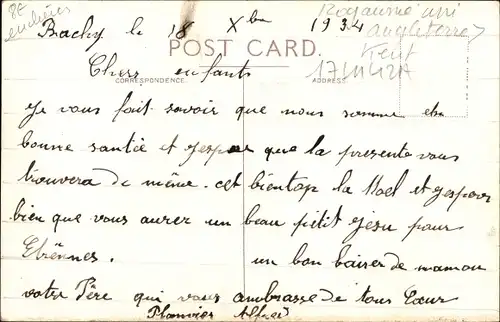 8€
Bachy le 18 Xbre 1934
Royaume uni
angleterre
Kent
POST CARD.
CORRESPONDENCE.
ADDRESS.
Chers enfants
Je vous fait savoir que nous somme en
bonne santée et j'espere que la presente vous
trouvera de même. cet bientop la Noel et j'espoir
bien que vous aurez un beau petit Jesu pour
Etrènnes. un bon baiser de maman
votre Père qui vous ambrasse de tous Cœur
Alfred